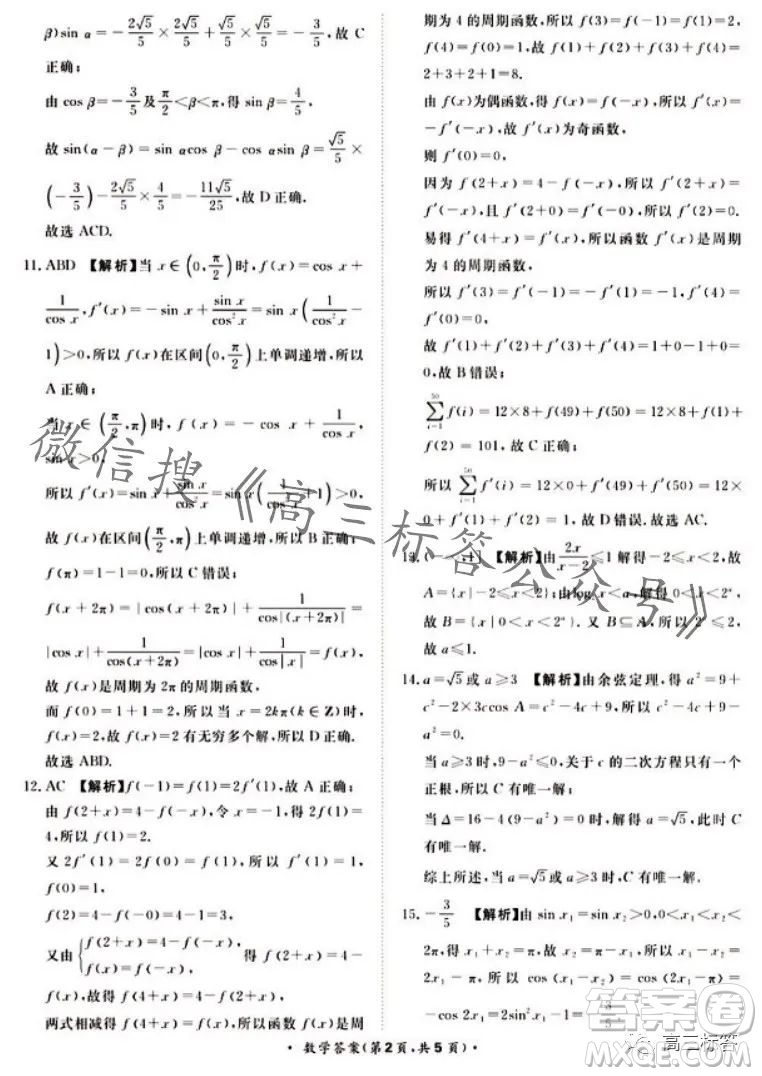 β)sin α=-\frac{2\sqrt{5}}{5}×\frac{2\sqrt{5}}{5}+\frac{\sqrt{5}}{5}×\frac{\sqrt{5}}{5}=-\frac{3}{5},故 C
正确;
由 cos β=-\frac{3}{5}及\frac{π}{2}<β<π,得 sin β=\frac{4}{5}.
故 sin(α-β)=sin αcos β-cos αsin β=\frac{\sqrt{5}}{5}×
(-\frac{3}{5})-\frac{2\sqrt{5}}{5}×\frac{4}{5}=\frac{-11\sqrt{5}}{25},故 D 正确.
故选 ACD.
11. ABD 【解析】当 x∈(0,\frac{π}{2})时,f(x)=cos x+
\frac{1}{cos x},f′(x)=-sin x+\frac{sin x}{cos²x}=sin x(\frac{1}{cos²x}-
1)>0,所以 f(x)在区间(0,\frac{π}{2})上单调递增,所以
A 正确;
当 x∈(\frac{π}{2},π)时,f(x)=-cos x+\frac{1}{cos x},
sin x>0,
故 f(x)在区间(\frac{π}{2},π)上单调递增,所以 B 正确;
f(π)=1-1=0,所以 C 错误;
f(x+2π)=|cos(x+2π)|+\frac{1}{cos(x+2π)}=
|cos x|+\frac{1}{cos x},
故 f(x)是周期为 2π 的周期函数,
而 f(0)=1+1=2,所以当 x=2kπ(k∈Z)时,
f(x)=2,故 f(x)=2 有无穷多个解,所以 D 正确.
故选 ABD.
12. AC 【解析】f(-1)=f(1)=2f′(1),故 A 正确;
由 f(2+x)=4-f(-x),令 x=-1,得 2f(1)=
4,所以 f(1)=2.
又 2f′(1)=2f(0)=f(1),所以 f′(1)=1,
f(0)=1,
f(2)=4-f(-0)=4-1=3,
又由{f(2+x)=4-f(-x), f(x)=f(-x), 得 f(2+x)=4-
f(x),故得 f(4+x)=4-f(2+x),
两式相减得 f(4+x)=f(x),所以 f(x)是周
期为 4 的周期函数,所以 f(3)=f(-1)=f(1)=2,
f(4)=f(0)=1,故 f(1)+f(2)+f(3)+f(4)=
2+3+2+1=8.
由 f(x)为偶函数,得 f(x)=f(-x),所以 f′(x)=
-f′(-x),故 f′(x)为奇函数,
则 f′(0)=0.
因为 f(2+x)=4-f(-x),所以 f′(2+x)=
f′(-x),且 f′(2+0)=f′(-0)=0,所以 f′(2)=0.
易得 f′(4+x)=f′(x),所以函数 f′(x)是周期
为 4 的周期函数,
所以 f′(3)=f′(-1)=-f′(1)=-1,f′(4)=
f′(0)=0,
故 f′(1)+f′(2)+f′(3)+f′(4)=1+0-1+0=0,
故 B 错误;
\sum_{i=1}^{50} f(i)=12×8+f(49)+f(50)=12×8+f(1)+
f(2)=101,故 C 正确;
所以 \sum_{i=1}^{50} f′(i)=12×0+f′(49)+f′(50)=12×0+
f′(1)+f′(2)=1,故 D 错误.故选 AC.
【解析】由\frac{2x}{x-2}≤1 解得-2≤x<2,故
A={x|-2≤x<2};
故 B={x|0<x<2ᵃ}.又 B⊆A,所以 2ᵃ≤2,
故 a≤1.
14. a=\sqrt{5}或 a≥3 【解析】由余弦定理,得 a²=9+
c²-2×3ccos A=c²-4c+9,所以 c²-4c+9-
a²=0.
当 a≥3 时,9-a²≤0,关于 c 的二次方程只有一个
正根,所以 C 有唯一解;
当 Δ=16-4(9-a²)=0 时,解得 a=\sqrt{5},此时 C
有唯一解.
综上所述,当 a=\sqrt{5}或 a≥3 时,C 有唯一解.
15. -\frac{3}{5} 【解析】由 sin x₁=sin x₂>0,0<x₁<x₂<
2π,得 x₁+x₂=π,故 x₁-x₂=x₁-(π-x₁)=
2x₁-π,所以 cos(x₁-x₂)=cos(2x₁-π)=
• 数学答案(第 2 页,共 5 页) •
微信搜《高三标答公众号》
答案卷
高三标答